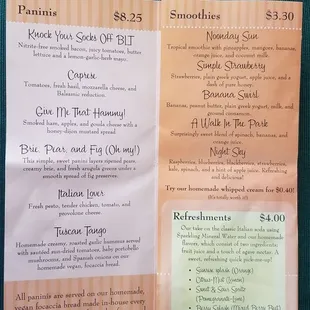 Paninis $8.25
Knock Your Socks Off BLT
Nitrite-free smoked bacon, juicy tomatoes, butter
lettuce and a lemon-garlic-herb mayo.
Caprese
Tomatoes, fresh basil, mozzarella cheese, and
Balsamic reduction.
Give Me That Hammy!
Smoked ham, apples, and gouda cheese with a
honey-dijon mustard spread.
Brie, Pear, and Fig (Oh my!)
This simple, sweet panini layers ripened pears,
creamy brie, and fresh arugula greens under a
smooth spread of fig preserves.
Italian Lover
Fresh pesto, tender chicken, tomato, and
provolone cheese.
Tuscan Tango
Homemade creamy, roasted garlic hummus served
with sauteed sun-dried tomatoes, baby portobello
mushrooms, and Spanish onions on our
homemade, vegan, focaccia bread.
All paninis are served on our homemade,
vegan focaccia bread made in-house every
Smoothies $3.30
Noonday Sun
Tropical smoothie with pineapples, mangoes, bananas,
orange juice, and coconut milk.
Simple Strawberry
Strawberries, plain greek yogurt, apple juice, and a
dash of pure honey.
Banana Swirl
Bananas, peanut butter, plain greek yogurt, milk, and
ground cinnamon.
A Walk In The Park
Surprisingly sweet blend of spinach, bananas, and
orange juice.
Night Sky
Raspberries, blueberries, blackberries, strawberries,
kale, spinach, and a hint of apple juice. Refreshing
and delicious!
Try our homemade whipped cream for $0.40!
(It's totally worth it)
Refreshments $4.00
Our take on the classic Italian soda using
Sparkling Mineral Water and our homemade
flavors, which consist of two ingredients:
fruit juice and a touch of agave nectar. A
sweet, refreshing quick pick-me-up!
• Sunrise splash (Orange)
• Citrus-Mist (Lemon)
• Sweet & Sour Spritz
(Pomegranate-Lime)
• Berry Splash (Mixed Berry Pint)